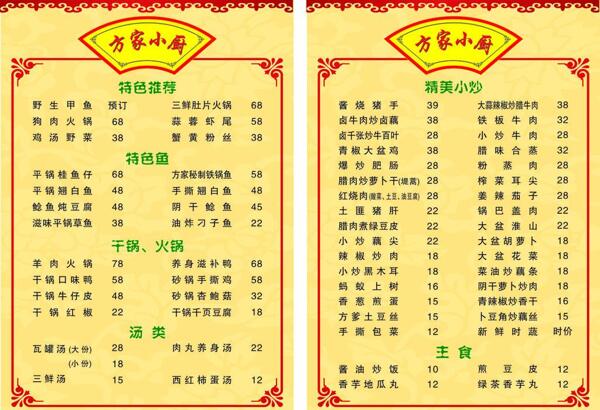 方家小厨
特色推荐
野生甲鱼 预订 三鲜肚片火锅 68
狗肉火锅 68 蒜蓉虾尾 58
鸡汤野菜 38 蟹黄粉丝 38
特色鱼
平锅桂鱼仔 68 方家秘制铁锅鱼 58
平锅翘白鱼 48 手撕翘白鱼 48
鲶鱼炖豆腐 48 阴干鲶鱼 45
滋味平锅草鱼 38 油炸刁子鱼 22
干锅、火锅
羊肉火锅 78 养身滋补鸭 68
干锅口味鸭 58 砂锅手撕鸡 58
干锅牛仔皮 48 砂锅杏鲍菇 32
干锅红椒 22 干锅千页豆腐 18
汤类
瓦罐汤(大份) 28 肉丸养身汤 22
(小份) 18
三鲜汤 15 西红柿蛋汤 12
方家小厨
精美小炒
酱烧猪手 39 大蒜辣椒炒腊牛肉 38
卤牛肉炒卤藕 38 铁板牛肉 32
卤千张炒牛百叶 28 小炒牛肉 28
青椒大盆鸡 38 腊味合蒸 32
爆炒肥肠 28 粉蒸肉 28
腊肉炒萝卜干(堤蒿) 28 榨菜耳尖 28
红烧肉(酸菜、土豆、油豆腐) 28 姜辣茄子 28
土匪猪肝 22 锅巴盖肉 22
腊肉煮绿豆皮 22 大盆淮山 22
小炒藕尖 22 大盆胡萝卜 18
辣椒炒肉 18 大盆花菜 18
小炒黑木耳 18 菜油炒藕条 18
蚂蚁上树 16 阴干萝卜炒肉 18
香葱煎蛋 15 青辣椒炒香干 16
方爹土豆丝 15 卜豆角炒藕丝 15
手撕包菜 12 新鲜时蔬 时价
主食
酱油炒饭 10 煎豆皮 12
香芋地瓜丸 12 绿茶香芋丸 12